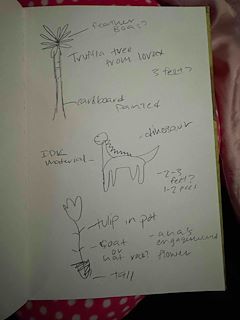 feather
boas?
Truffla tree
from lorax
3 feet?
cardboard
painted
dinosaur
IDK
material
2-3
feet?
tulip in pot
coat
or
hat rack?
ana's
engagement
flower
tall